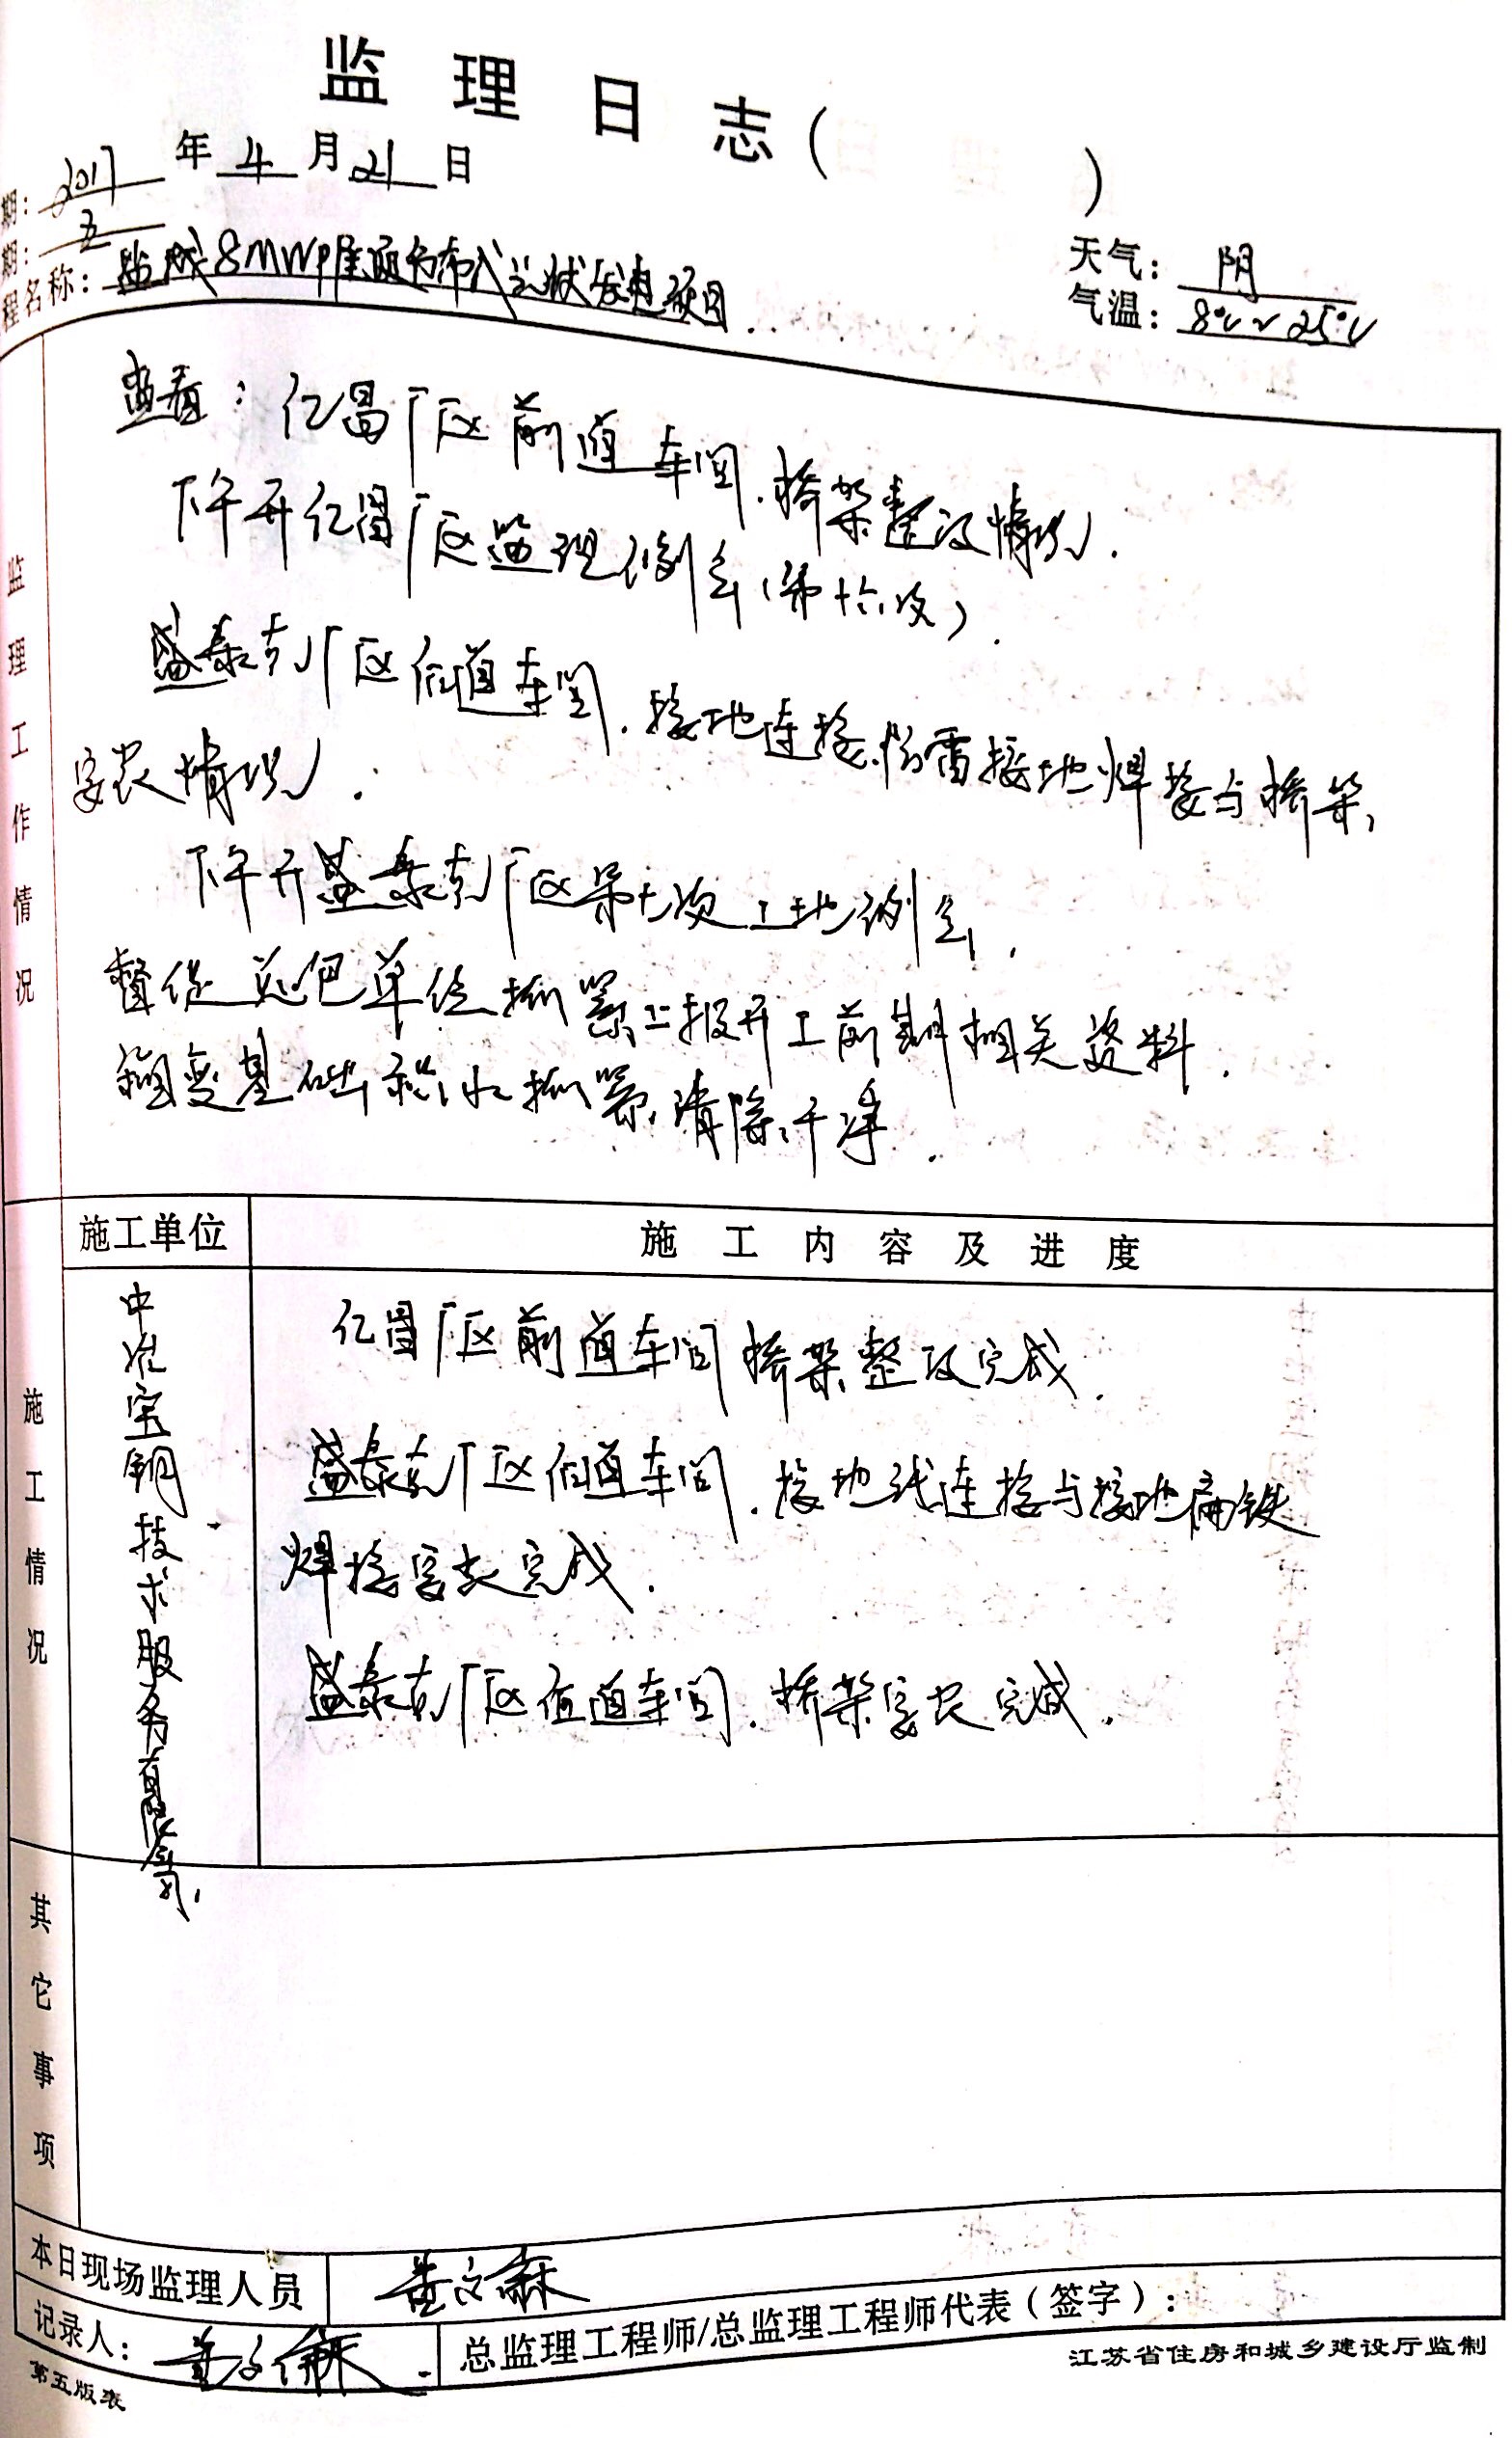 监理日志( )
期: 2017 年 4 月 21 日
期: 五
程名称: 盐城8MWP屋顶分布式光伏发电项目.
天气: 阴
气温: 8℃~25℃
监理工作情况
查看: 亿昌厂区前道车间.桥架整改情况.
下午开亿昌厂区监理例会(第十六次).
盛泰克厂区 道车间.接地连接.防雷接地焊接与桥架,
安装情况.
下午开盛泰克厂区第七次工地例会.
督促总包单位抓紧上报开工前期相关资料.
箱变基础积水抓紧清除干净.
施工单位
施工内容及进度
施工情况
中冶宝钢技术服务有限公司
亿昌厂区前道车间桥架整改完成.
盛泰克厂区 道车间.接地线连接与接地扁铁
焊接安装完成.
盛泰克厂区 道车间.桥架安装完成.
其它事项
本日现场监理人员
黄文
记录人: 黄文
总监理工程师/总监理工程师代表(签字):
第五版表
江苏省住房和城乡建设厅监制